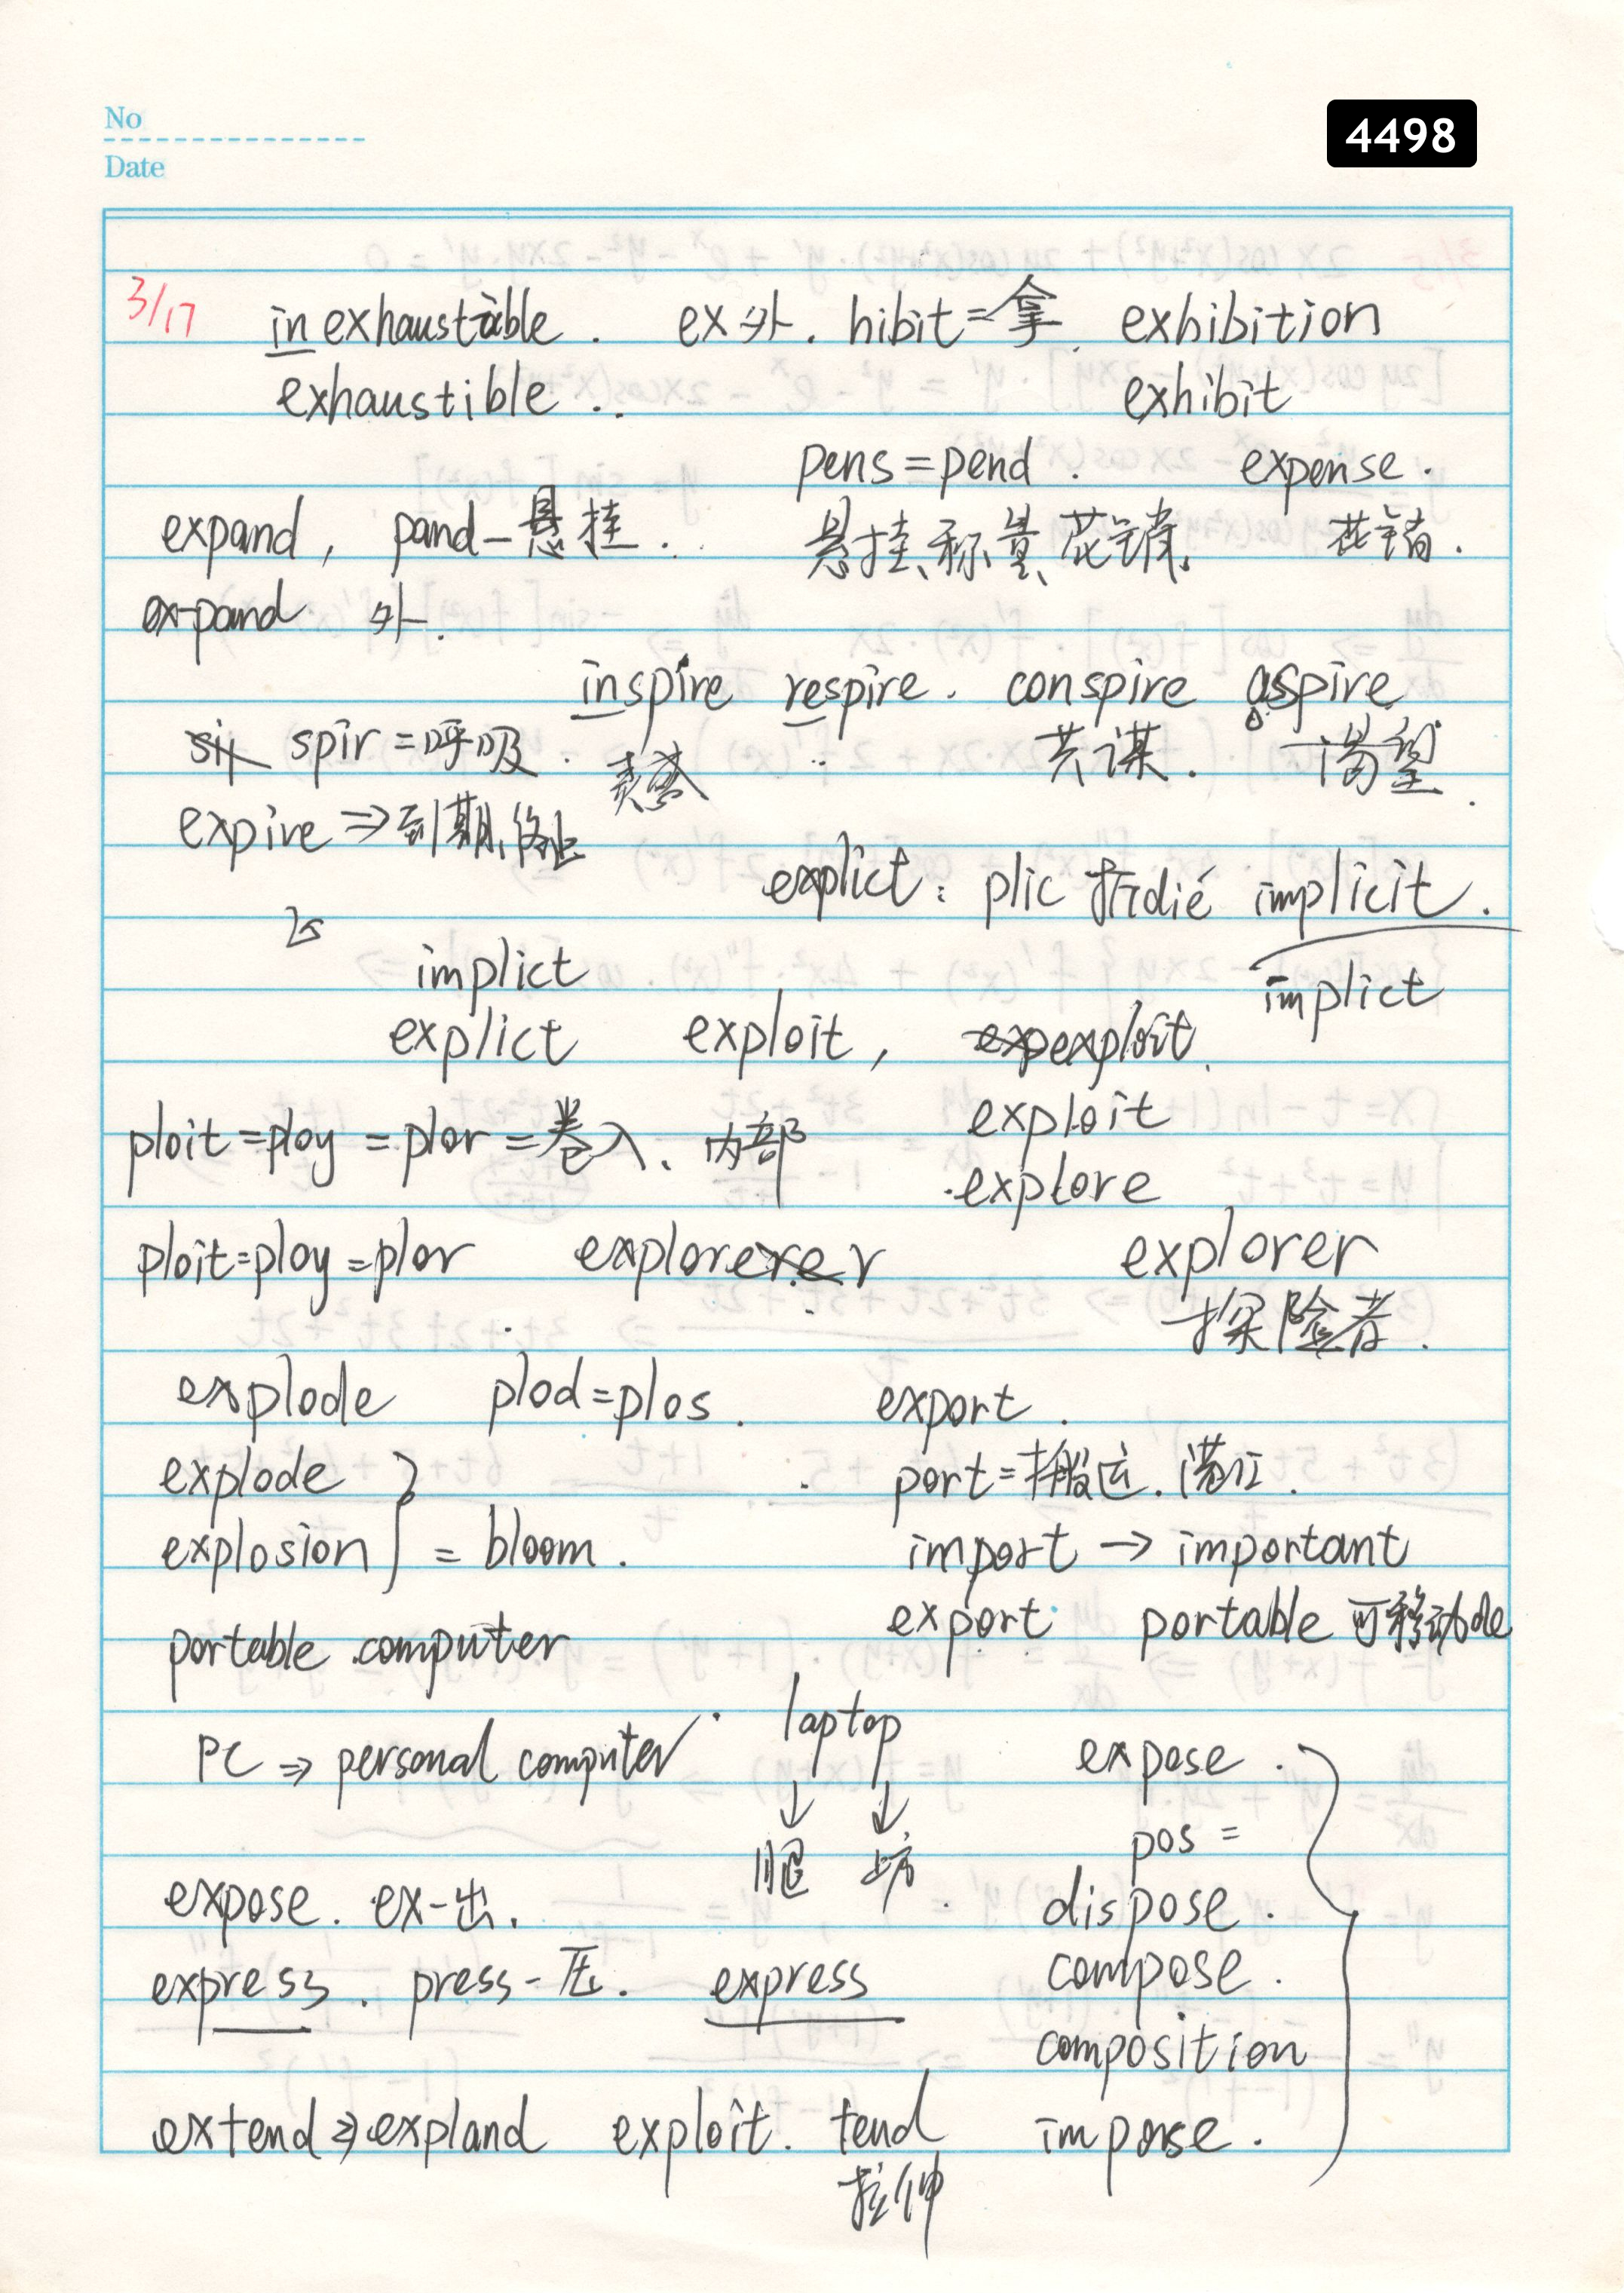 No
Date
4498
3/17 inexhaustable. ex外. hibit=拿. exhibition
exhaustible.. exhibit
pens=pend. expense.
expand, pand-悬挂. 悬挂、称量、花销. 花销.
ex-pand 外.
inspire respire. conspire aspire
spir=呼吸. 共谋. 渴望.
expire⇒到期、终止
explict: plic 折dié implicit.
implict implict
explict exploit, exploit.
ploit=ploy=plor=卷入、内部 exploit
explore
ploit=ploy=plor explorer explorer
探险者.
explode plod=plos. export.
explode port=搬运.港口.
explosion = bloom. import → important
export portable 可移动de
portable computer
PC ⇒ personal computer laptop expose.
↓ ↓
腿 pos =
expose. ex-出. dispose.
express. press-压. express compose.
composition
extend⇒expland exploit. tend impose.
拉伸